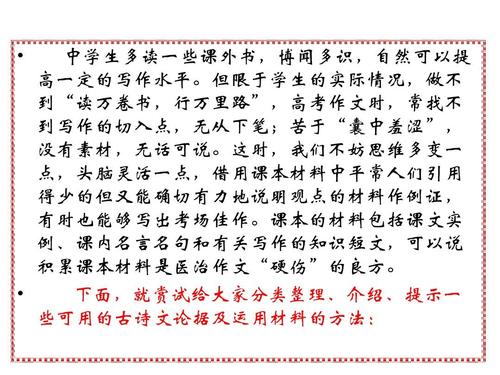 • 中学生多读一些课外书，博闻多识，自然可以提
高一定的写作水平。但限于学生的实际情况，做不
到“读万卷书，行万里路”，高考作文时，常找不
到写作的切入点，无从下笔；苦于“囊中羞涩”，
没有素材，无话可说。这时，我们不妨思维多变一
点，头脑灵活一点，借用课本材料中平常人们引用
得少的但又能确切有力地说明观点的材料作例证，
有时也能够写出考场佳作。课本的材料包括课文实
例、课内名言名句和有关写作的知识短文，可以说
积累课本材料是医治作文“硬伤”的良方。
• 下面，就赏试给大家分类整理、介绍、提示一
些可用的古诗文论据及运用材料的方法：